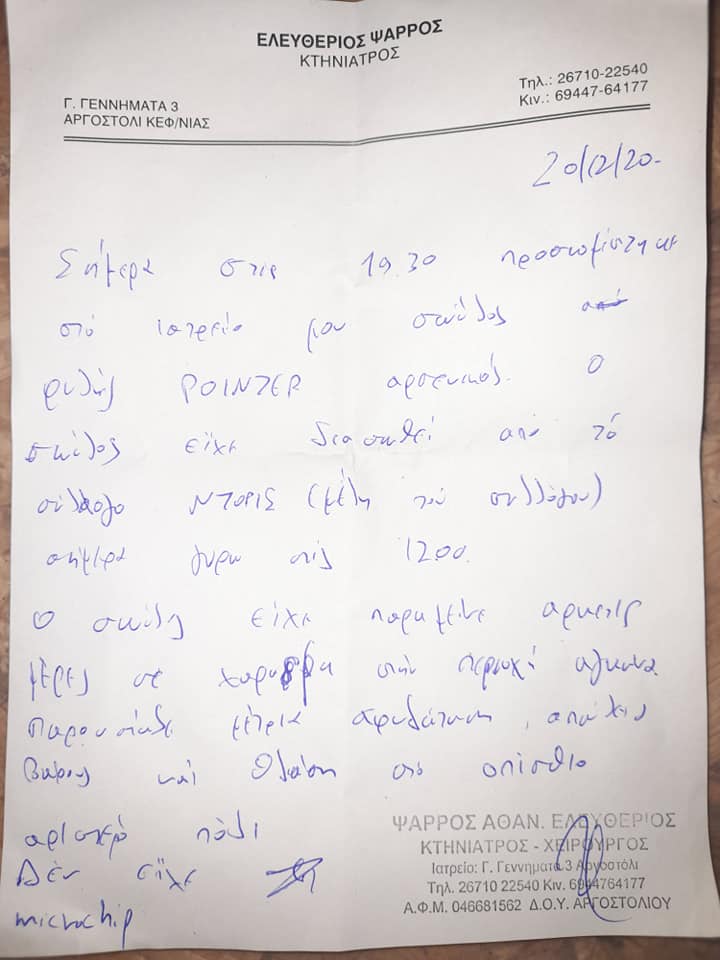 ΕΛΕΥΘΕΡΙΟΣ ΨΑΡΡΟΣ
ΚΤΗΝΙΑΤΡΟΣ
Γ. ΓΕΝΝΗΜΑΤΑ 3
ΑΡΓΟΣΤΟΛΙ ΚΕΦ/ΝΙΑΣ
Τηλ.: 26710-22540
Κιν.: 69447-64177
20/12/20
Σήμερα στις 19.30 προσκομίστηκε
στό ιατρείο μου σκύλος
φυλής POINTER αρσενικός. Ο
σκύλος είχε διασωθεί από τό
σύλλογο ΝΤΟΡΙΣ (μέλη τού συλλόγου)
σήμερα γύρω στις 12.00.
Ο σκύλος είχε παραμείνει αρκετές
μέρες σε χαράδρα στήν περιοχή
Παρουσίαζε μέτρια αφυδάτωση, απώλεια
Βάρους καί θλάση στό οπίσθιο
αριστερό πόδι
Δέν είχε
microchip
ΨΑΡΡΟΣ ΑΘΑΝ. ΕΛΕΥΘΕΡΙΟΣ
ΚΤΗΝΙΑΤΡΟΣ - ΧΕΙΡΟΥΡΓΟΣ
Ιατρείο: Γ. Γεννηματα 3 Αργοστόλι
Τηλ. 26710 22540 Κιν. 6944764177
Α.Φ.Μ. 046681562 Δ.Ο.Υ. ΑΡΓΟΣΤΟΛΙΟΥ